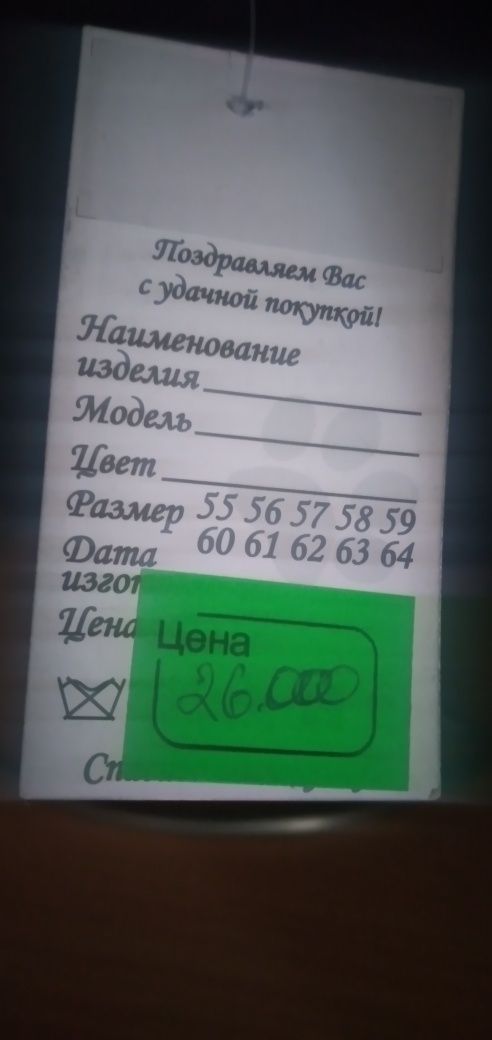 Поздравляем Вас
с удачной покупкой!
Наименование
изделия
Модель
Цвет
Размер 55 56 57 58 59
60 61 62 63 64
Дата
Цена
Цена
26.000